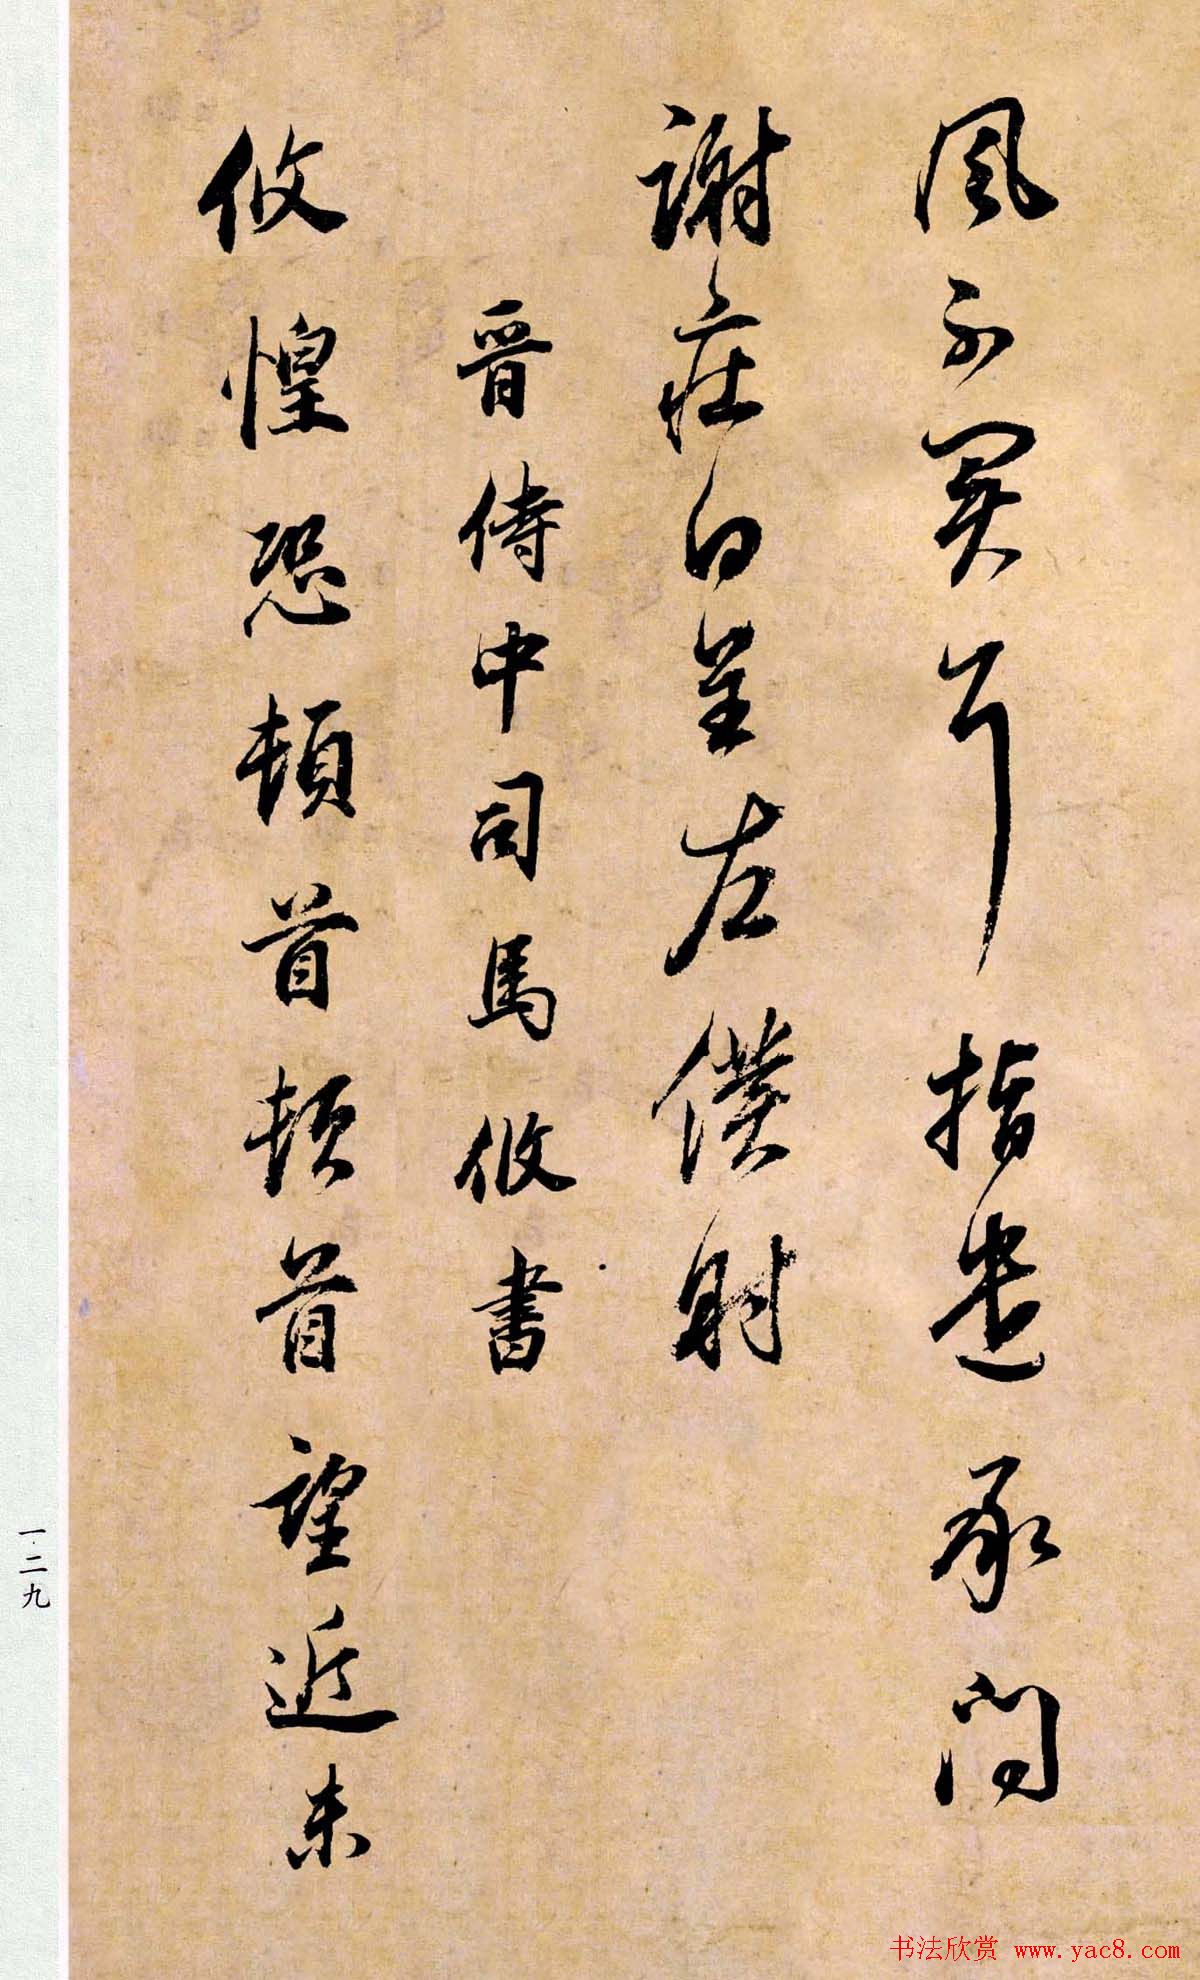 風不異耳指遣承問
謝莊白呈左僕射
晉侍中司馬攸書
攸惶恐頓首頓首望近未
一二九
书法欣赏 www.yac8.com